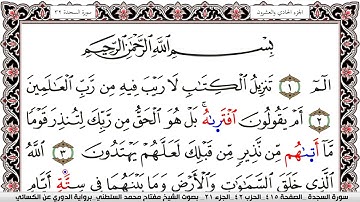 الجزء الحادي والعشرون
سورة السجدة ٣٢
بِسْمِ اللَّهِ الرَّحْمَٰنِ الرَّحِيمِ
الٓمٓ ١ تَنزِيلُ الْكِتَابِ لَا رَيْبَ فِيهِ مِن رَّبِّ الْعَالَمِينَ
٢ أَمْ يَقُولُونَ افْتَرَىٰهُ ۚ بَلْ هُوَ الْحَقُّ مِن رَّبِّكَ لِتُنذِرَ قَوْمًا
مَّا أَتَىٰهُم مِّن نَّذِيرٍ مِّن قَبْلِكَ لَعَلَّهُمْ يَهْتَدُونَ ٣ اللَّهُ
الَّذِي خَلَقَ السَّمَٰوَٰتِ وَالْأَرْضَ وَمَا بَيْنَهُمَا فِي سِتَّةِ أَيَّامٍ
سورة السجدة - الصفحة ٤١٥ الحزب ٤٢ الجزء ٢١ بصوت الشيخ مفتاح محمد السلطني برواية الدوري عن الكسائي